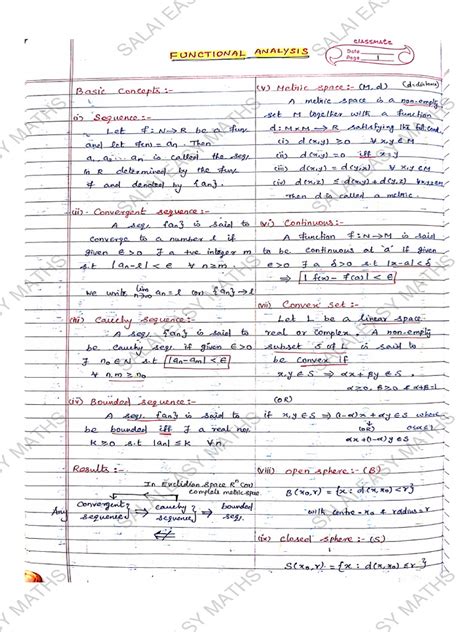 FUNCTIONAL ANALYSIS
classmate
Date
Page 1
Basic Concepts :-
(i) Sequence :-
Let f : N → R be a fun
and let f(n) = an. Then
a, a2... an is called the seq.
in R determined by the fun
f and denoted by {an}.
(ii) Convergent sequence :-
A seq. {an} is said to
converge to a number l if
given ε > 0 ∃ a +ve integer m
s.t |an-l| < ε ∀ n ≥ m
We write lim n→∞ an = l or {an} → l
(iii) Cauchy sequence :-
A seq. {an} is said to
be cauchy seq. if given ε > 0
∃ n0 ∈ N s.t |an-am| < ε
∀ n,m ≥ n0
(iv) Bounded sequence :-
A seq. {an} is said to
be bounded iff ∃ a real no.
k ≥ 0 s.t |an| ≤ k ∀ n.
Results :-
In Euclidian space R^n (or)
complete metric space
Any Convergent sequence ⇒ cauchy sequence ⇒ bounded seq.
(v) Metric space :- (M,d) (d: distance)
A metric space is a non-empty
set M together with a function
d: M×M → R satisfying the foll. cond.
(i) d(x,y) ≥ 0 ∀ x,y ∈ M
(ii) d(x,y) = 0 iff x=y
(iii) d(x,y) = d(y,x) ∀ x,y ∈ M
(iv) d(x,z) ≤ d(x,y)+d(y,z) ∀ x,y,z ∈ M
Then d is called a metric.
(vi) Continuous :-
A function f : N → M is said
to be continuous at 'a' if given
ε > 0 ∃ a δ > 0 s.t |x-a| < δ
⇒ |f(x)-f(a)| < ε
(vii) Convex set :-
Let L be a linear space
real or complex. A non-empty
subset S of L is said to
be convex if
x,y ∈ S ⇒ αx + βy ∈ S.
α≥0, β≥0 & α+β=1
(OR)
if x,y ∈ S ⇒ (1-α)x + αy ∈ S where
(OR)
αx + (1-α)y ∈ S
(viii) open sphere :- (B)
B(x0,r) = {x : d(x,x0) < r}
with centre = x0 & radius = r
(ix) closed sphere :- (S)
S(x0,r) = {x : d(x,x0) ≤ r}
SALAI EASY MATHS